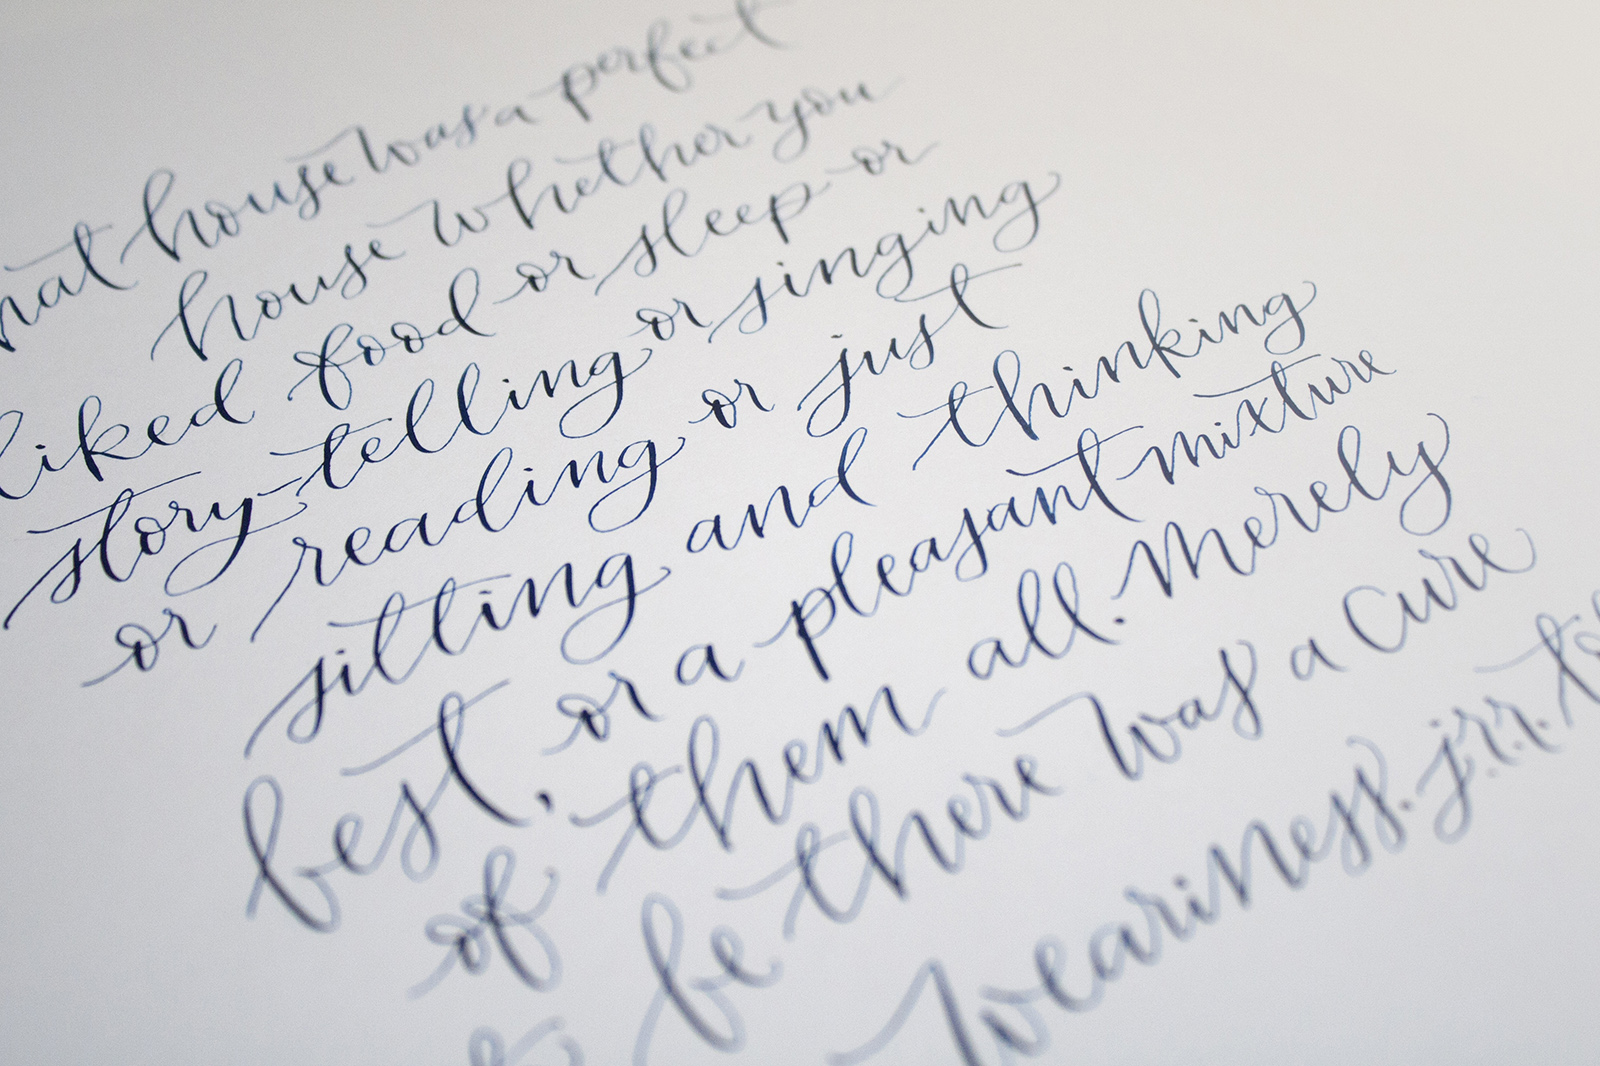 hat house was a perfect
house whether you
liked food or sleep or
story-telling or singing
or reading or just
sitting and thinking
best, or a pleasant mixture
of them all. Merely
to be there was a cure
weariness. j.r.r. to